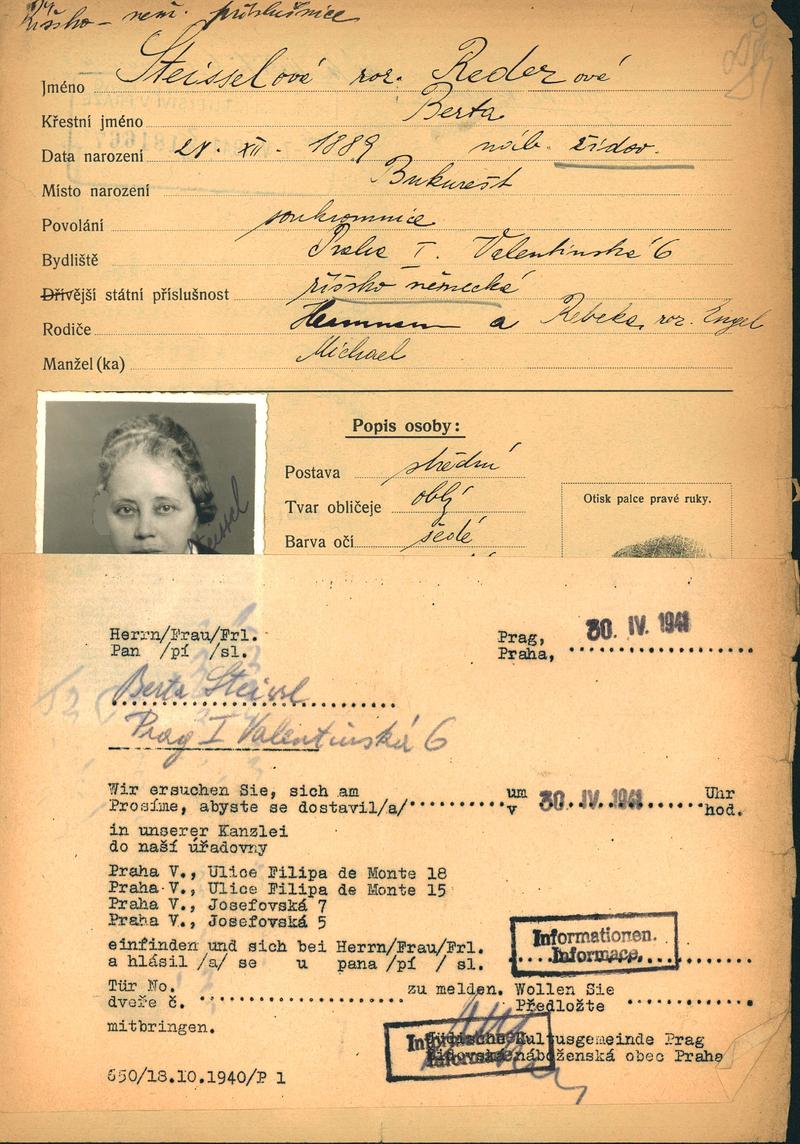 Říšsko - něm. příslušnice
Jméno Steisselové roz. Rederové
Křestní jméno Berta
Data narození 21. XII. 1889 náb. židov.
Místo narození Bukurešt
Povolání soukromnice
Bydliště Praha I. Valentinská 6
Dřívější státní příslušnost říšsko německá
Rodiče Hermann a Rebeka, roz. Engel
Manžel(ka) Michael
Popis osoby:
Postava střední
Tvar obličeje oblý
Barva očí šedé
Otisk palce pravé ruky.
Steissel
Herrn/Frau/Frl.
Pan /pí /sl.
Prag,
Praha, 30. IV. 1941
Berta Steissl
Prag I Valentinská 6
Wir ersuchen Sie, sich am um Uhr
Prosíme, abyste se dostavil/a/ v 30. IV. 1941 hod.
in unserer Kanzlei
do naší úřadovny
Praha V., Ulice Filipa de Monte 18
Praha V., Ulice Filipa de Monte 15
Praha V., Josefovská 7
Praha V., Josefovská 5
einfinden und sich bei Herrn/Frau/Frl.
a hlásil /a/ se u pana /pí / sl.
Informationen.
Informace.
Tür No. zu melden. Wollen Sie
dveře č. Předložte
mitbringen.
Jüdische Kultusgemeinde Prag
Židovská náboženská obec Praha
Informationen.
Informace.
650/18.10.1940/P 1